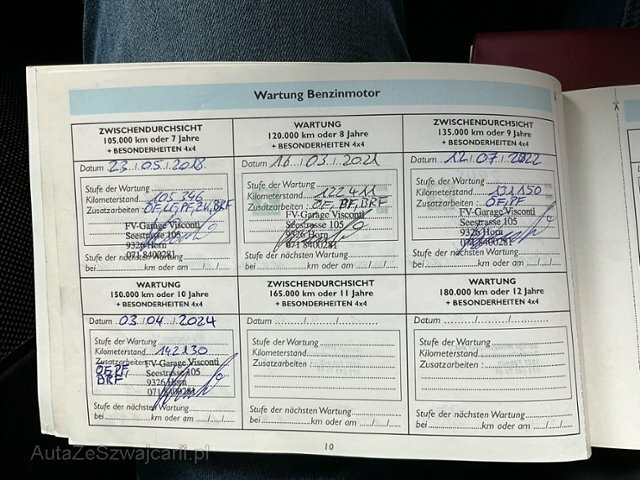 Wartung Benzinmotor
ZWISCHENDURCHSICHT
105.000 km oder 7 Jahre
+ BESONDERHEITEN 4x4
Datum 23 / 05 / 2018
Stufe der Wartung
Kilometerstand 105 346
Zusatzarbeiten : ÖF, LF, PF, ZK, BRF
FV-Garage Visconti
Seestrasse 105
9326 Horn
071 8400281
Stufe der nächsten Wartung
bei km oder am ..../..../....
WARTUNG
120.000 km oder 8 Jahre
+ BESONDERHEITEN 4x4
Datum 16 / 03 / 2021
Stufe der Wartung
Kilometerstand 122 411
Zusatzarbeiten : ÖF, PF, BRF
FV-Garage Visconti
Seestrasse 105
9326 Horn
071 8400281
Stufe der nächsten Wartung
bei km oder am ..../..../....
ZWISCHENDURCHSICHT
135.000 km oder 9 Jahre
+ BESONDERHEITEN 4x4
Datum 12 / 07 / 2022
Stufe der Wartung
Kilometerstand 131 150
Zusatzarbeiten : ÖF, PF
FV-Garage Visconti
Seestrasse 105
9326 Horn
071 8400281
Stufe der nächsten Wartung
bei km oder am ..../..../....
WARTUNG
150.000 km oder 10 Jahre
+ BESONDERHEITEN 4x4
Datum 03 / 04 / 2024
Stufe der Wartung
Kilometerstand 142 130
Zusatzarbeiten : ÖF, PF,
BRF
FV-Garage Visconti
Seestrasse 105
9326 Horn
071 8400281
Stufe der nächsten Wartung
bei km oder am ..../..../....
ZWISCHENDURCHSICHT
165.000 km oder 11 Jahre
+ BESONDERHEITEN 4x4
Datum ......../......../................
Stufe der Wartung
Kilometerstand
Zusatzarbeiten :
Stufe der nächsten Wartung
bei km oder am ..../..../....
WARTUNG
180.000 km oder 12 Jahre
+ BESONDERHEITEN 4x4
Datum ......../......../................
Stufe der Wartung
Kilometerstand
Zusatzarbeiten :
Stufe der nächsten Wartung
bei km oder am ..../..../....
10
AutaZeSzwajcarii.pl